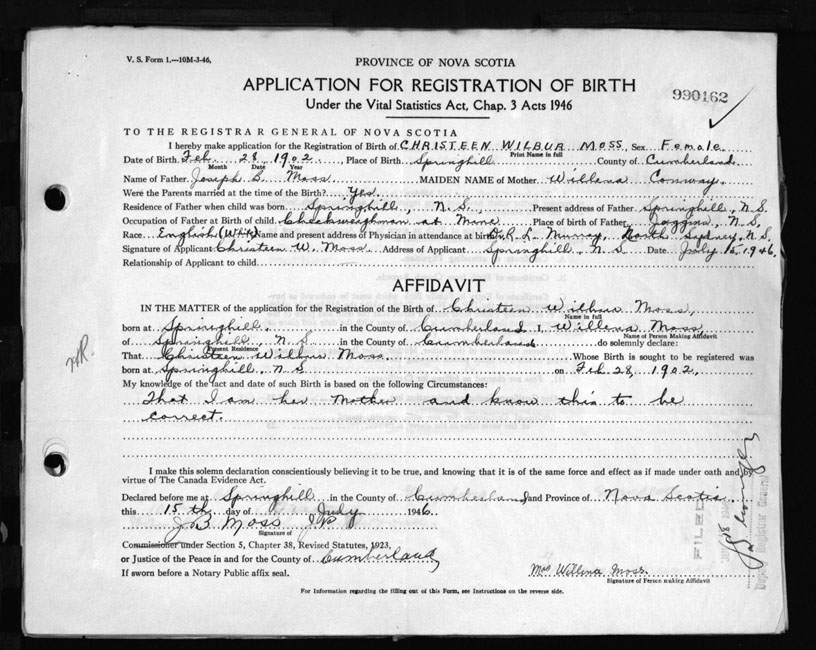 V. S. Form 1.—10M-3-46.
PROVINCE OF NOVA SCOTIA
APPLICATION FOR REGISTRATION OF BIRTH
990162
Under the Vital Statistics Act, Chap. 3 Acts 1946
TO THE REGISTRAR GENERAL OF NOVA SCOTIA
I hereby make application for the Registration of Birth of CHRISTEEN WILBUR MOSS, Sex Female.
Print Name in full
Date of Birth Feb 28 1902, Place of Birth Springhill County of Cumberland.
Month Date Year
Name of Father Joseph B. Moss MAIDEN NAME of Mother Willena Conway.
Were the Parents married at the time of the Birth? Yes.
Residence of Father when child was born Springhill, N.S., Present address of Father Springhill, N.S.
Occupation of Father at Birth of child. Checkweighman at Mine Place of birth of Father Joggins, N.S.
Race English (White) Name and present address of Physician in attendance at birth Dr. R. L. Murray, North Sydney, N.S.
Signature of Applicant Christeen W. Moss Address of Applicant Springhill, N.S. Date July 15, 1946.
Relationship of Applicant to child
AFFIDAVIT
IN THE MATTER of the application for the Registration of the Birth of Christeen Wilbur Moss,
Name in full
born at Springhill, in the County of Cumberland I, Willena Moss,
Name of Person Making Affidavit
of Springhill, N.S. in the County of Cumberland do solemnly declare:
Present Residence
That Christeen Wilbur Moss. Whose Birth is sought to be registered was
born at Springhill, N.S. on Feb 28, 1902,
My knowledge of the fact and date of such Birth is based on the following Circumstances:
That I am her Mother and know this to be
correct.
I make this solemn declaration conscientiously believing it to be true, and knowing that it is of the same force and effect as if made under oath and by
virtue of The Canada Evidence Act.
Declared before me at Springhill in the County of Cumberland and Province of Nova Scotia
this 15th day of July 1946
J B Moss J.P.
Signature of
Commissioner under Section 5, Chapter 38, Revised Statutes, 1923,
or Justice of the Peace in and for the County of Cumberland
If sworn before a Notary Public affix seal.
Mrs Willena Moss.
Signature of Person making Affidavit
For Information regarding the filling out of this Form, see Instructions on the reverse side.
FILED
Deputy Registrar General